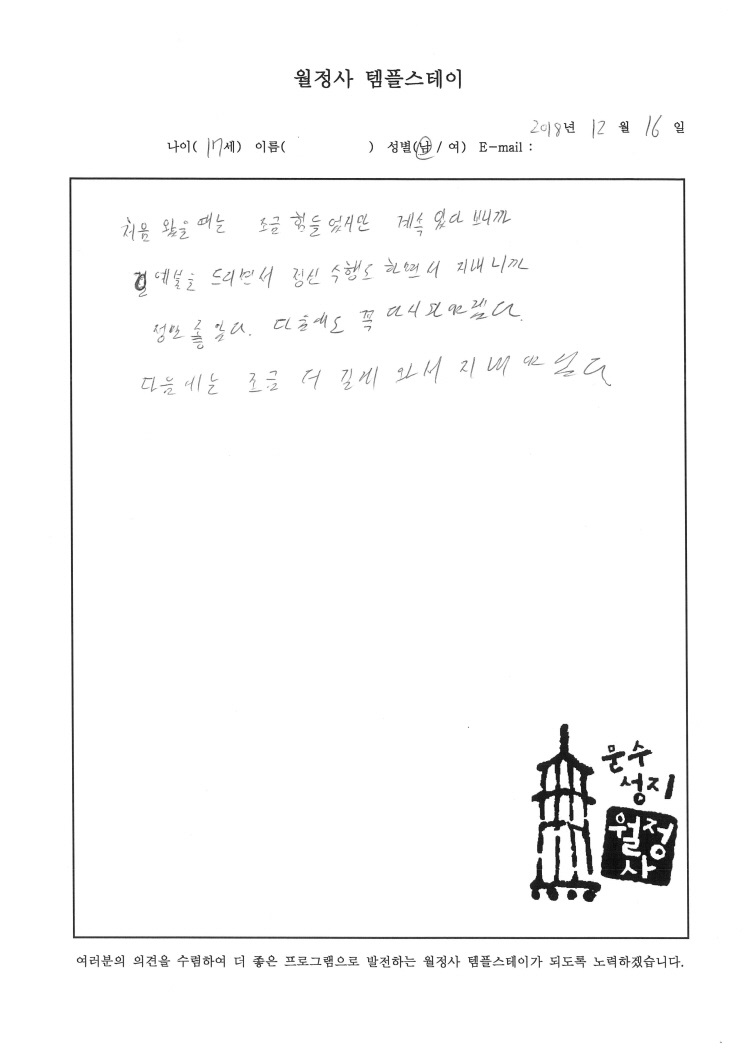 월정사 템플스테이
2018년 12월 16일
나이( 17세) 이름( ) 성별(남 / 여) E-mail :
처음 왔을 때는 조금 힘들었지만 계속 있다 보니까
예불을 드리면서 정신 수행도 하면서 지내니까
정말 좋았다. 다음에도 꼭 다시 와야겠다.
다음에는 조금 더 길게 와서 지내야겠다
문수
성지
월정
사
여러분의 의견을 수렴하여 더 좋은 프로그램으로 발전하는 월정사 템플스테이가 되도록 노력하겠습니다.